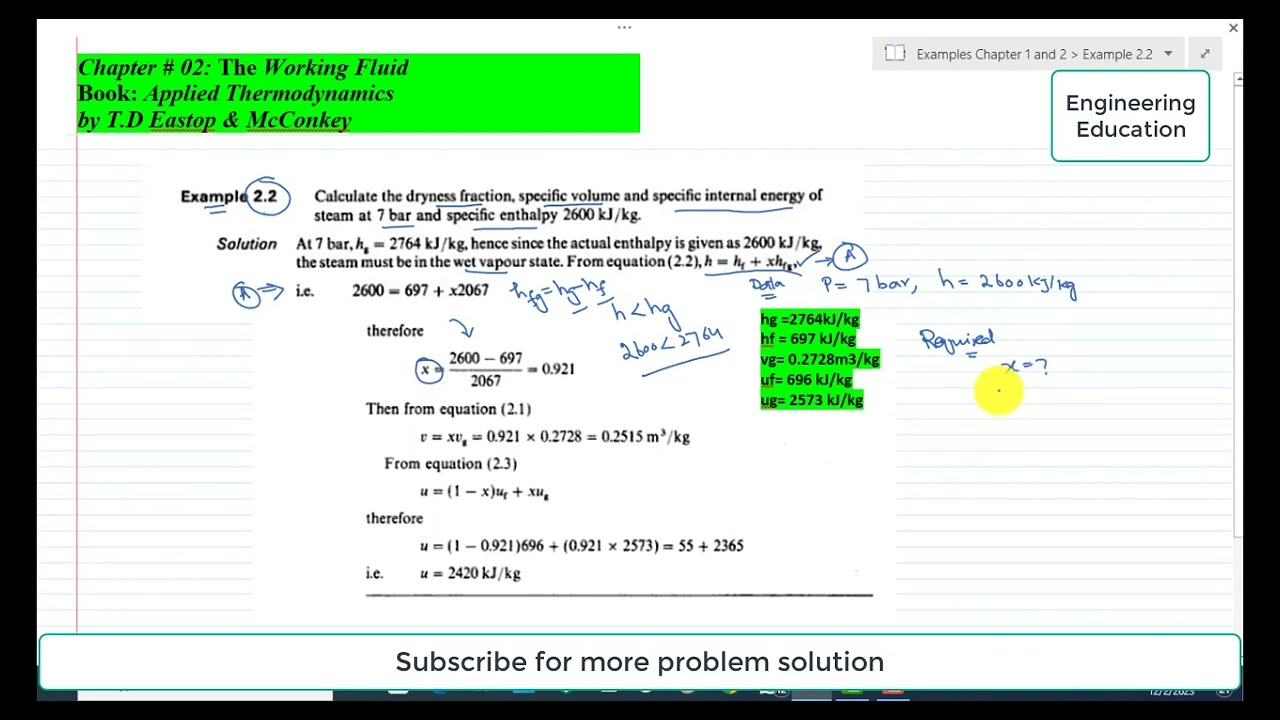 Chapter # 02: The Working Fluid
Book: Applied Thermodynamics
by T.D Eastop & McConkey
Examples Chapter 1 and 2 > Example 2.2
Engineering
Education
Example 2.2 Calculate the dryness fraction, specific volume and specific internal energy of
steam at 7 bar and specific enthalpy 2600 kJ/kg.
Solution At 7 bar, hg = 2764 kJ/kg, hence since the actual enthalpy is given as 2600 kJ/kg,
the steam must be in the wet vapour state. From equation (2.2), h = hf + xhfg, → A
A ⇒ i.e. 2600 = 697 + x2067
hfg = hg - hf
h < hg
2600 < 2764
Data P = 7 bar, h = 2600 kJ/kg
hg =2764kJ/kg
hf = 697 kJ/kg
vg= 0.2728m3/kg
uf= 696 kJ/kg
ug= 2573 kJ/kg
Required
x = ?
therefore
x = 2600 − 697 / 2067 = 0.921
Then from equation (2.1)
v = xvg = 0.921 × 0.2728 = 0.2515 m³/kg
From equation (2.3)
u = (1 − x)uf + xug
therefore
u = (1 − 0.921)696 + (0.921 × 2573) = 55 + 2365
i.e. u = 2420 kJ/kg
Subscribe for more problem solution
12/2/2023